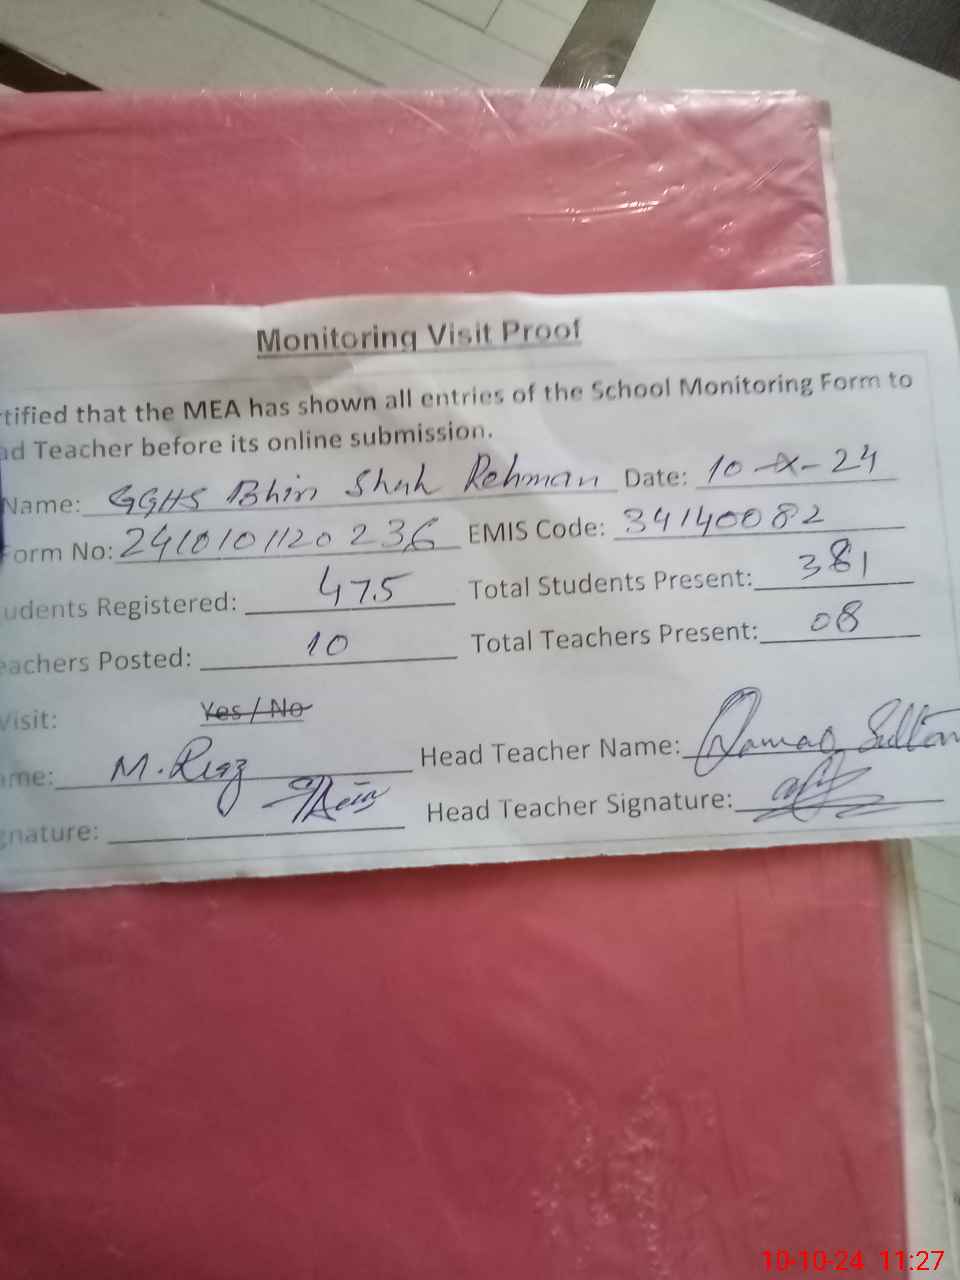 Monitoring Visit Proof
rtified that the MEA has shown all entries of the School Monitoring Form to
ad Teacher before its online submission.
Name: GGHS Bhin Shah Rehman Date: 10-X-24
Form No: 2410101120236 EMIS Code: 34140082
udents Registered: 475 Total Students Present: 381
eachers Posted: 10 Total Teachers Present: 08
Visit: Yes / No
ame: M. Riaz Head Teacher Name: Qamar Sultan
gnature: Head Teacher Signature:
10-10-24 11:27